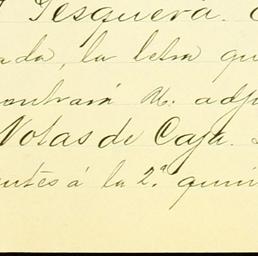 Pesquera.
ada, la letra qu
ontrará U. adju
Notas de Caja.
entes á la 2.ª quin